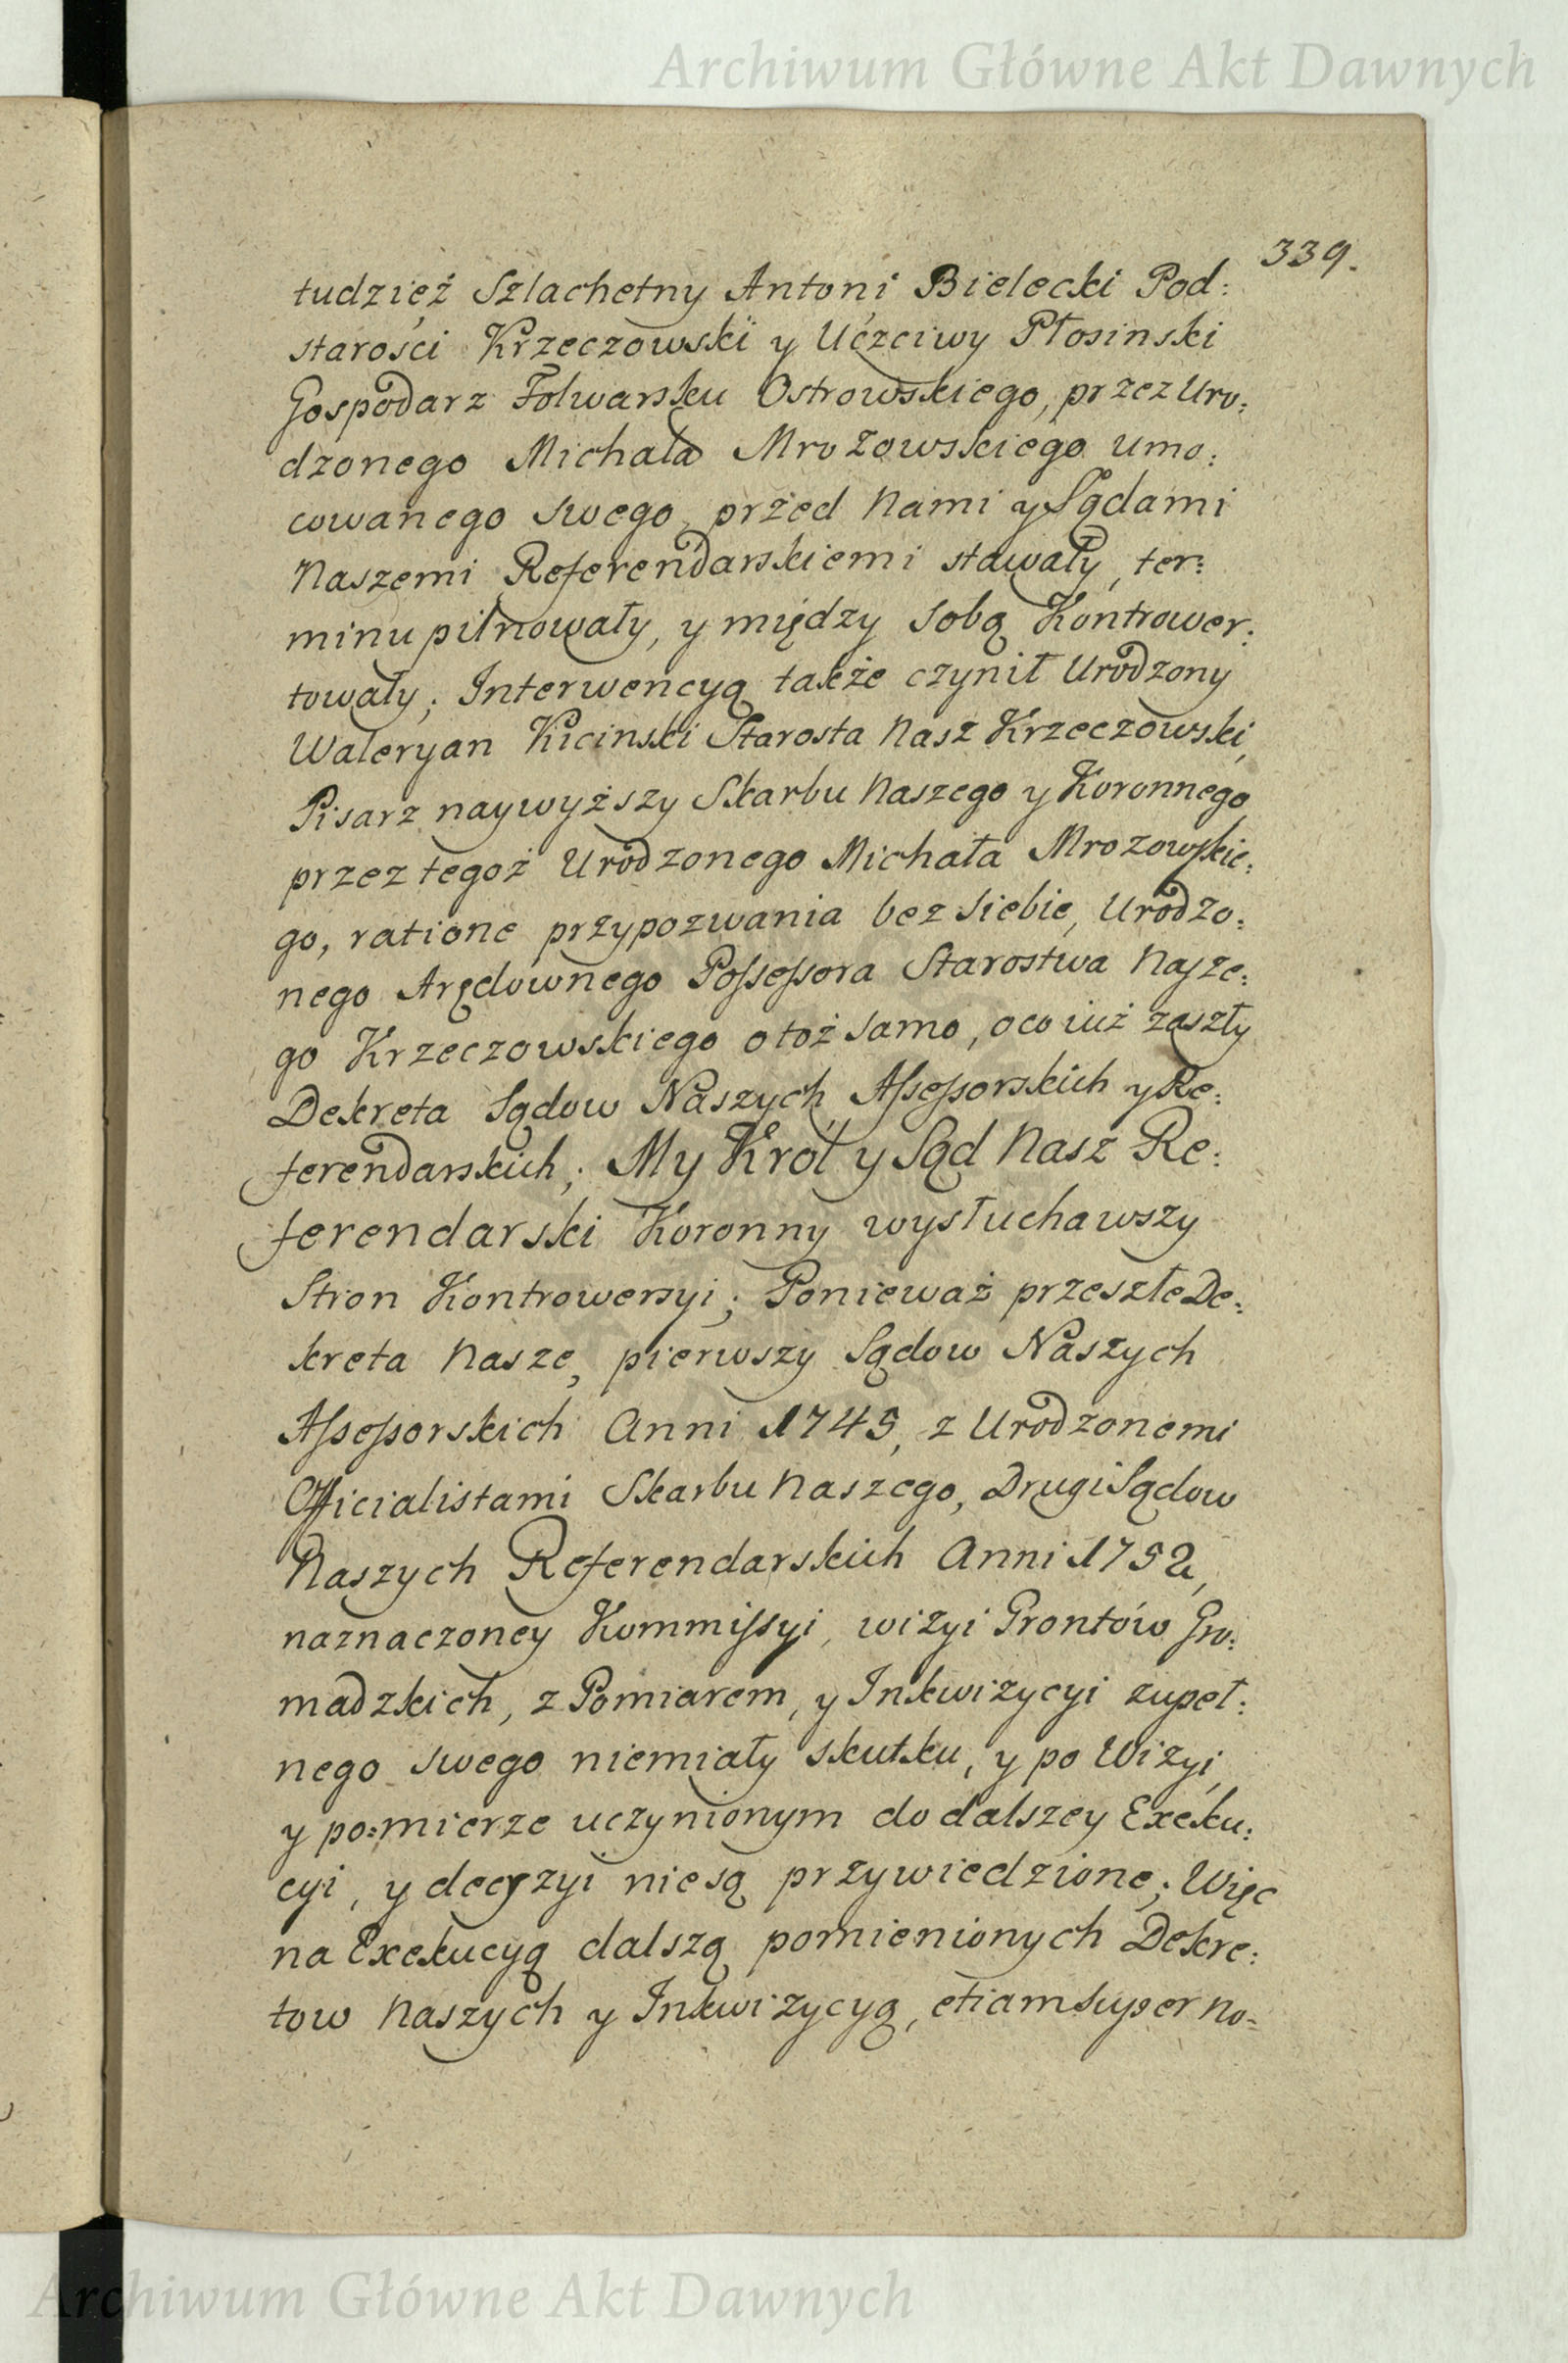 Archiwum Główne Akt Dawnych
339.
tudzież Szlachetny Antoni Bielecki Pod:
starości Krzeczowski y Uczciwy Płosinski
Gospodarz Folwarsku Ostrowskiego, przez Uro:
dzonego Michała Mrozowskiego umo:
cowanego swego, przed Nami y Sądami
Naszemi Referendarskiemi stawały, ter:
minu pilnowały, y między sobą Kontrower:
towały; Interwencyą także czynił Urodzony
Waleryan Kicinski Starosta Nasz Krzeczowski,
Pisarz naywyższy Skarbu Naszego y Koronnego
przez tegoż Urodzonego Michała Mrozowskie:
go, ratione przypozwania bez siebie, Urodzo:
nego Arędownego Possessora Starostwa Nasze:
go Krzeczowskiego o toż samo, o co iuż zaszły
Dekreta Sądow Naszych Assessorskich y Re:
ferendarskich; My Krol y Sąd Nasz Re:
ferendarski Koronny wysłuchawszy
Stron Kontrowersyi; Ponieważ przeszłe De:
kreta Nasze, pierwszy Sądow Naszych
Assessorskich Anni 1745, z Urodzonemi
Officialistami Skarbu Naszego, Drugi Sądow
Naszych Referendarskich Anni 1752,
naznaczoney Kommissyi, wizyi Grontów Gro:
madzkich, z Pomiarem, y Inkwizycyi zupeł:
nego swego niemiały skutku, y po Wizyi,
y po:mierze uczynionym do dalszey Exeku:
cyi, y decyzyi niesą przywiedzione; Więc
na Exekucyą dalszą pomienionych Dekre:
tow Naszych y Inkwizycyą, etiam super no-
Archiwum Główne Akt Dawnych